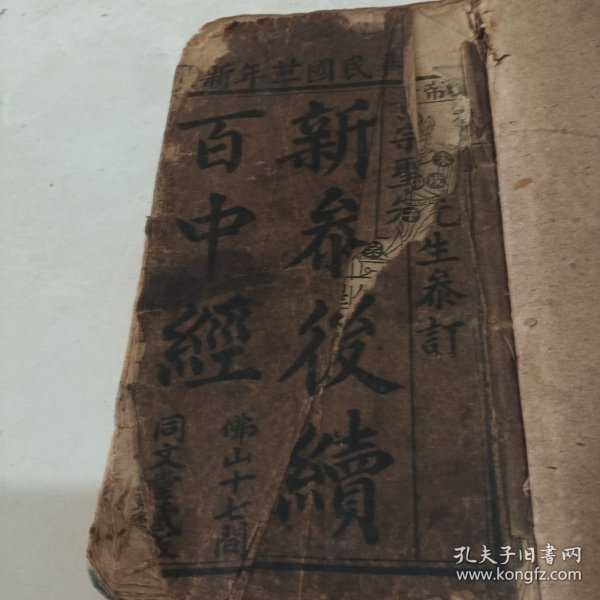 民國卅年新
宗聖
先生參訂
新參後續
百中經
佛山十七間
同文堂
孔夫子旧书网
www.kongfz.com